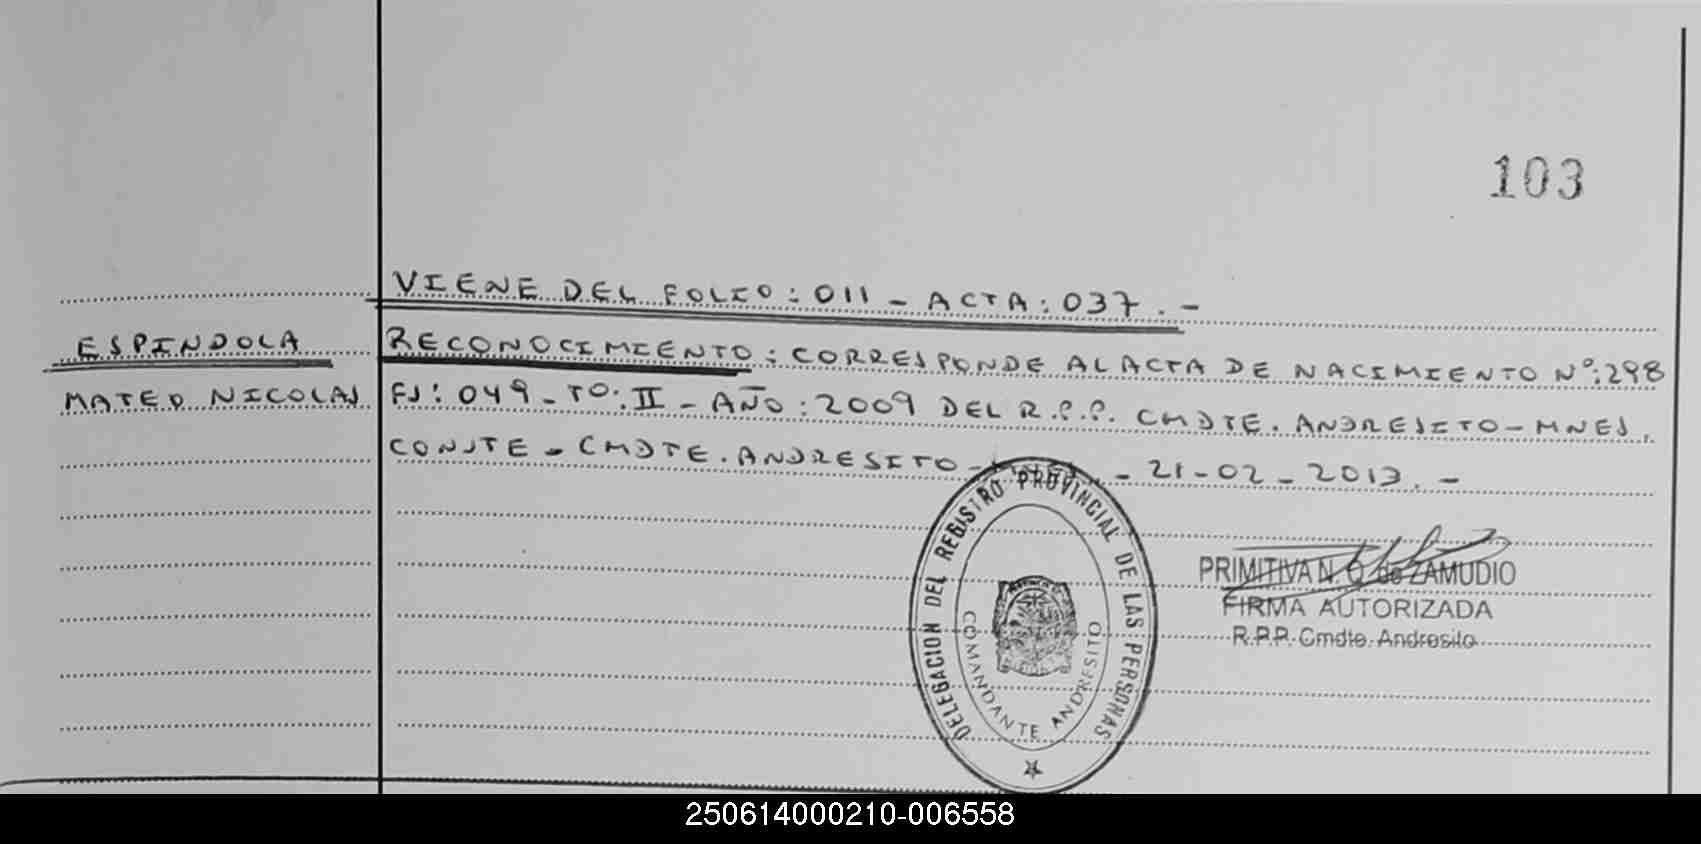 103
VIENE DEL FOLIO: 011 - ACTA: 037. -
ESPINDOLA
RECONOCIMIENTO: CORRESPONDE AL ACTA DE NACIMIENTO Nº: 298
MATEO NICOLAS
FS: 049 - Tº: II - AÑO: 2009 DEL R.P.P. CMDTE. ANDRESITO - MNES.
CONSTE - CMDTE. ANDRESITO - - 21-02-2013. -
DELEGACION DEL REGISTRO PROVINCIAL DE LAS PERSONAS
COMANDANTE ANDRESITO
PRIMITIVA N. O. de ZAMUDIO
FIRMA AUTORIZADA
R.P.P. Cmdte. Andresito
250614000210-006558